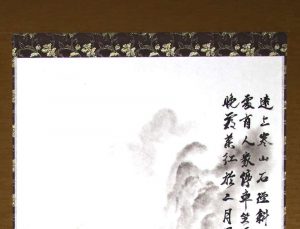 遠上寒山石徑斜
處有人家停車坐
晚霜葉紅於二月